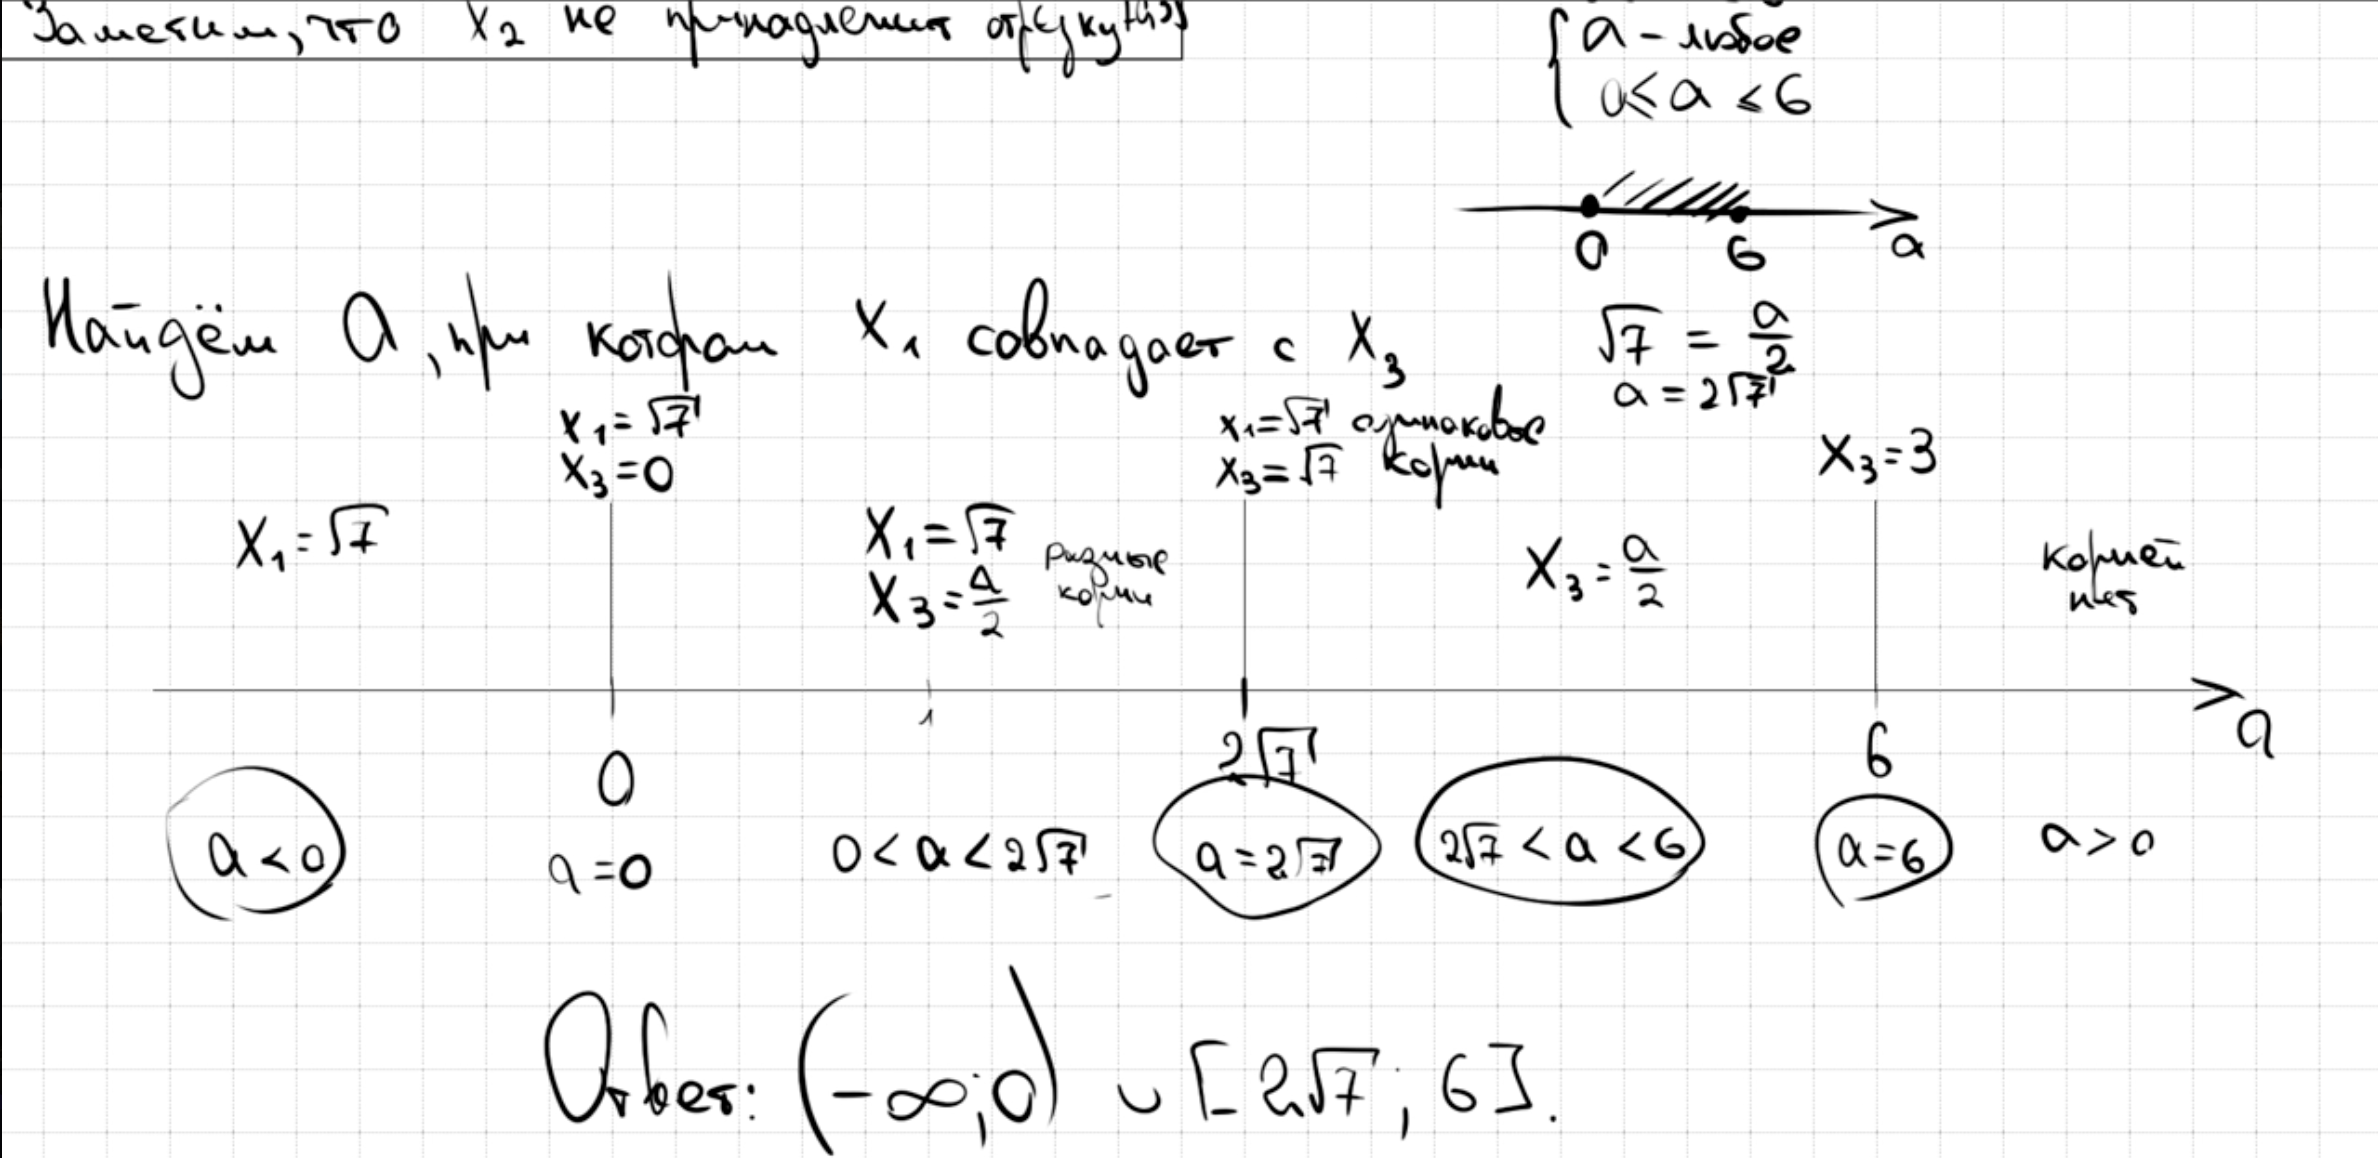 Заметим, что x₂ не принадлежит отрезку [0;3]
{ a - любое
0 ≤ a ≤ 6
0 6 a
Найдём a, при котором x₁ совпадает с x₃
√7 = a/2
a = 2√7
x₁ = √7
x₃ = 0
x₁ = √7 одинаковые
x₃ = √7 корни
x₃ = 3
x₁ = √7
x₁ = √7 разные
x₃ = a/2 корни
x₃ = a/2
корней
нет
1
0 2√7 6 a
a < 0 a = 0 0 < a < 2√7 a = 2√7 2√7 < a < 6 a = 6 a > 0
Ответ: (-∞;0) ∪ [2√7; 6].